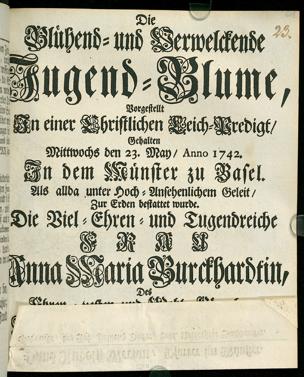 Die
Blühend- und Verwelckende
Jugend-Blume,
Vorgestellt
In einer Christlichen Leich-Predigt/
Gehalten
Mittwochs den 23. May/ Anno 1742.
In dem Münster zu Basel.
Als allda unter Hoch-Ansehenlichem Geleit/
Zur Erden bestattet wurde.
Die Viel-Ehren- und Tugendreiche
FRAU
Anna Maria Burckhardtin,
Des
23.